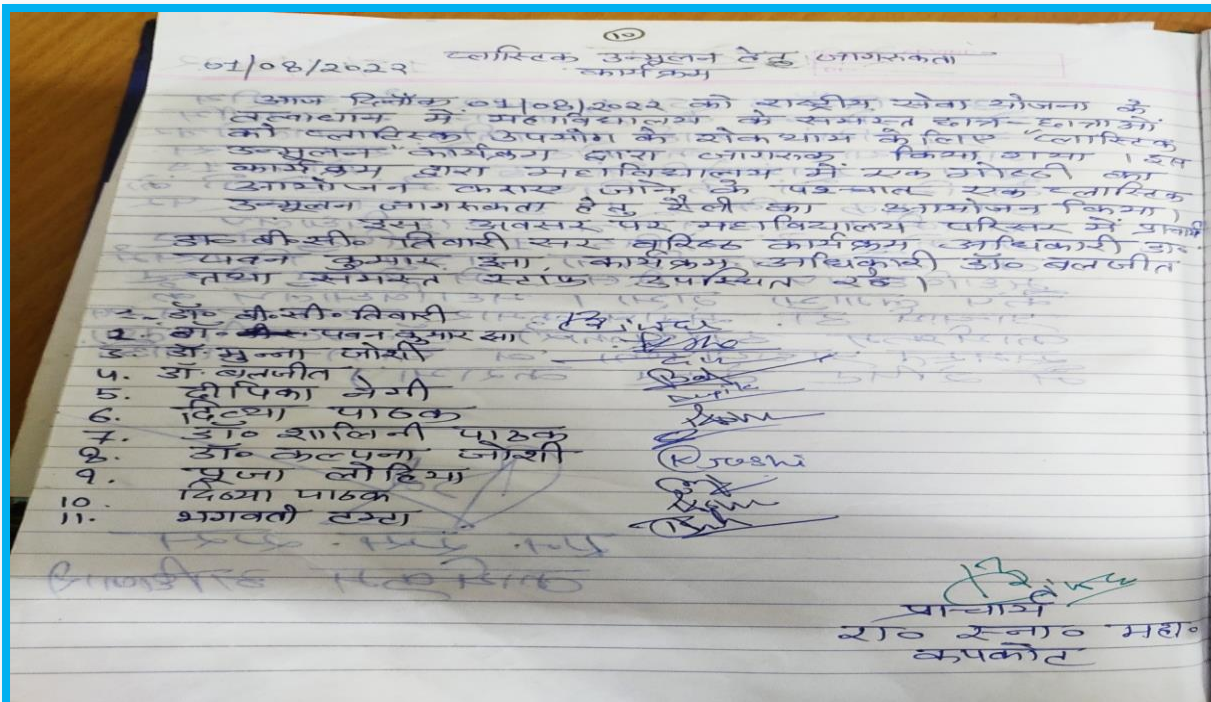 10
01/08/2022 प्लास्टिक उन्मूलन हेतु जागरुकता
कार्यक्रम
आज दिनाँक 01/08/2022 को राष्ट्रीय सेवा योजना के
तत्वाधान में महाविद्यालय के समस्त छात्र-छात्राओं
को प्लास्टिक उपयोग के रोकथाम के लिए "प्लास्टिक
उन्मूलन" कार्यक्रम द्वारा जागरुक किया गया । इस
कार्यक्रम द्वारा महाविद्यालय में एक गोष्ठी का
आयोजन कराए जाने के पश्चात एक प्लास्टिक
उन्मूलन जागरुकता हेतु रैली का आयोजन किया।
इस अवसर पर महाविद्यालय परिसर में प्राचार्य
डा० बी०सी० तिवारी सर वरिष्ठ कार्यक्रम अधिकारी डा०
पवन कुमार झा कार्यक्रम अधिकारी डॉ० बलजीत
तथा समस्त स्टाफ उपस्थित रहे।
1- डॉ० बी०सी० तिवारी
2. डॉ० पवन कुमार झा
3. डॉ. मुन्ना जोशी
4. डॉ. बलजीत
5. दीपिका नेगी
6. दिव्या पाठक
7. डॉ० शालिनी पाठक
8. डॉ० कल्पना जोशी KJoshi
9. पूजा लोहिया
10. दिव्या पाठक
11. भगवती टम्टा
प्राचार्य
रा० स्ना० महा०
कपकोट